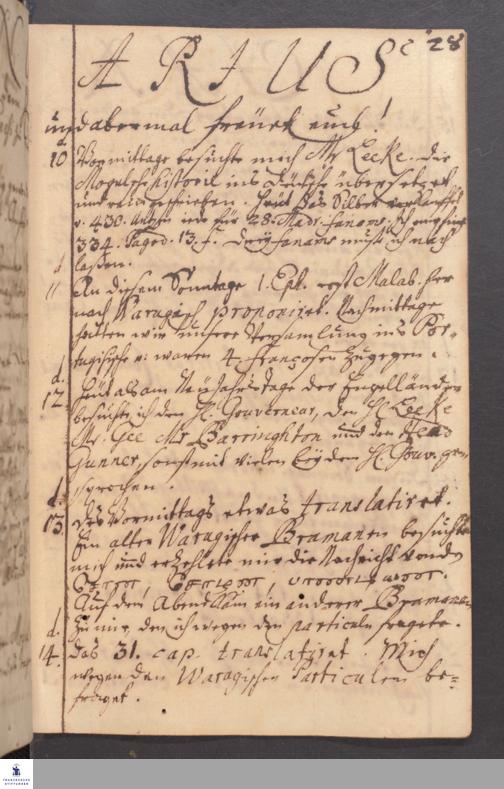 28
ARIUS
und abermal
10 Vormittage besuchte mich Mr Leeke. Die
Mogulsch. Historie ins Deutsche übersetzet
das Silber verkauffet
v. 430. für 28. Madr. fanams.
334. Pagod. 13. f. Drey fanams must ich nach
lassen.
d. 11 An diesem Sonntage 1. Epl. erst Malab. her
nach Warugisch proponiret. Nachmittage
hatten wir unsere Versamlung ins Por-
tugisische u: waren 4. Françosen zugegen.
d. 12. Heut als am Neu Jahrs Tage der Engelländer
besuchte ich den H. Gouverneur, den H. Leeke
Mr. Gee Mr Barringhton und den Head
Gunner, sonst mit vielen bey dem H. Gouv. ge-
sprochen.
d. 13 Des Vormittags etwas translatiret.
Ein alter Warugischer Bramanen besuchte
mich und erzehlete mir die Nachricht von den
Auf den Abend kam ein anderer Bramanen
zu mir, den ich wegen den particuln fragete.
d. 14. Das 31. cap. translatiret. Mich
wegen den Warugischen Particulen be-
fraget.
FRANCKESCHE
STIFTUNGEN